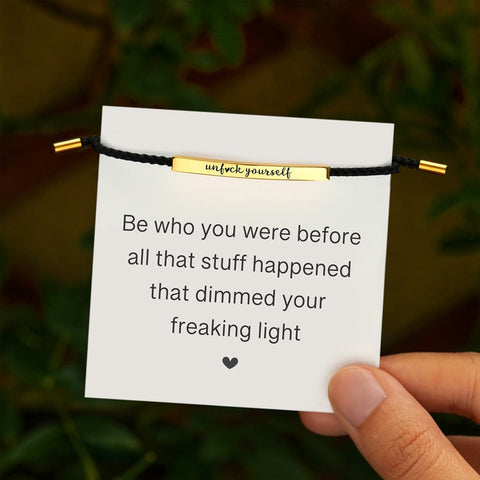 unf♥ck yourself
Be who you were before
all that stuff happened
that dimmed your
freaking light
♥